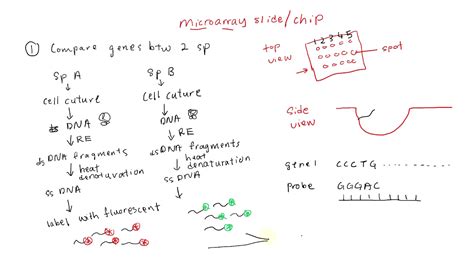 microarray slide/chip
① Compare genes btw 2 sp
1 2 3 4 5
top view
spot
sp A
sp B
cell cuture
cell cuture
ds DNA
DNA
RE
RE
ds DNA fragments
ds DNA fragments
heat denaturation
heat denaturation
ss DNA
ss DNA
label with fluorescent
side view
gene 1 CCCTG ..........
probe GGGAC